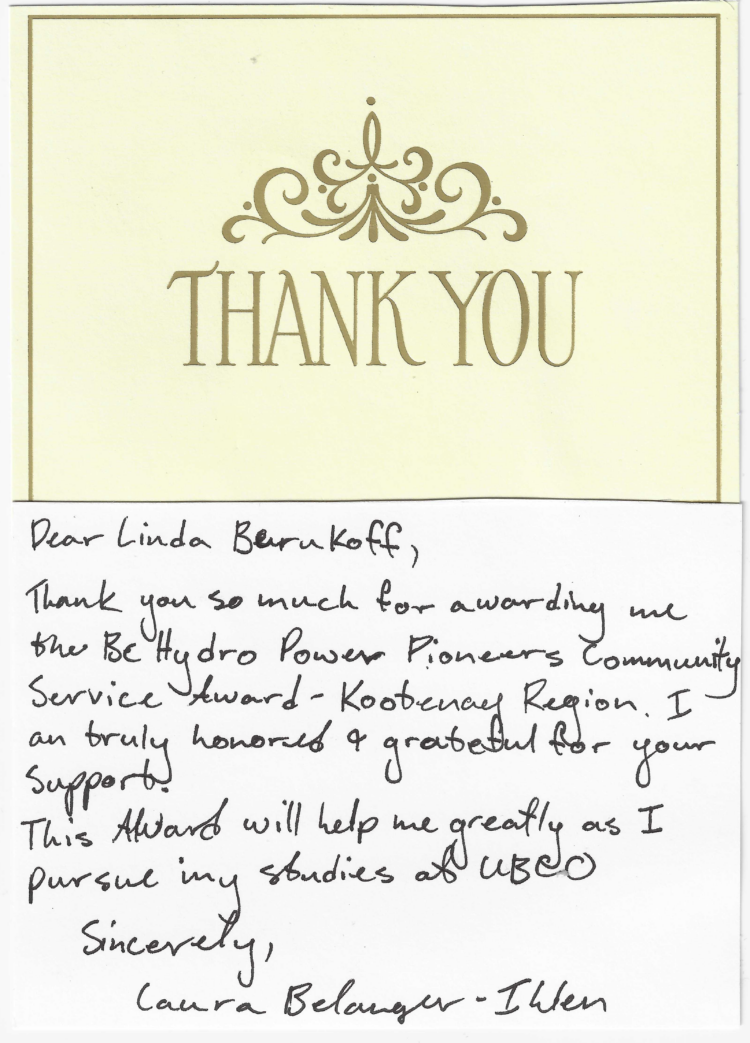 THANK YOU
Dear Linda Berukoff,
Thank you so much for awarding me
the BC Hydro Power Pioneers Community
Service Award - Kootenay Region. I
am truly honored & grateful for your
support.
This Award will help me greatly as I
pursue my studies at UBCO
Sincerely,
Laura Belanger - Ihlen